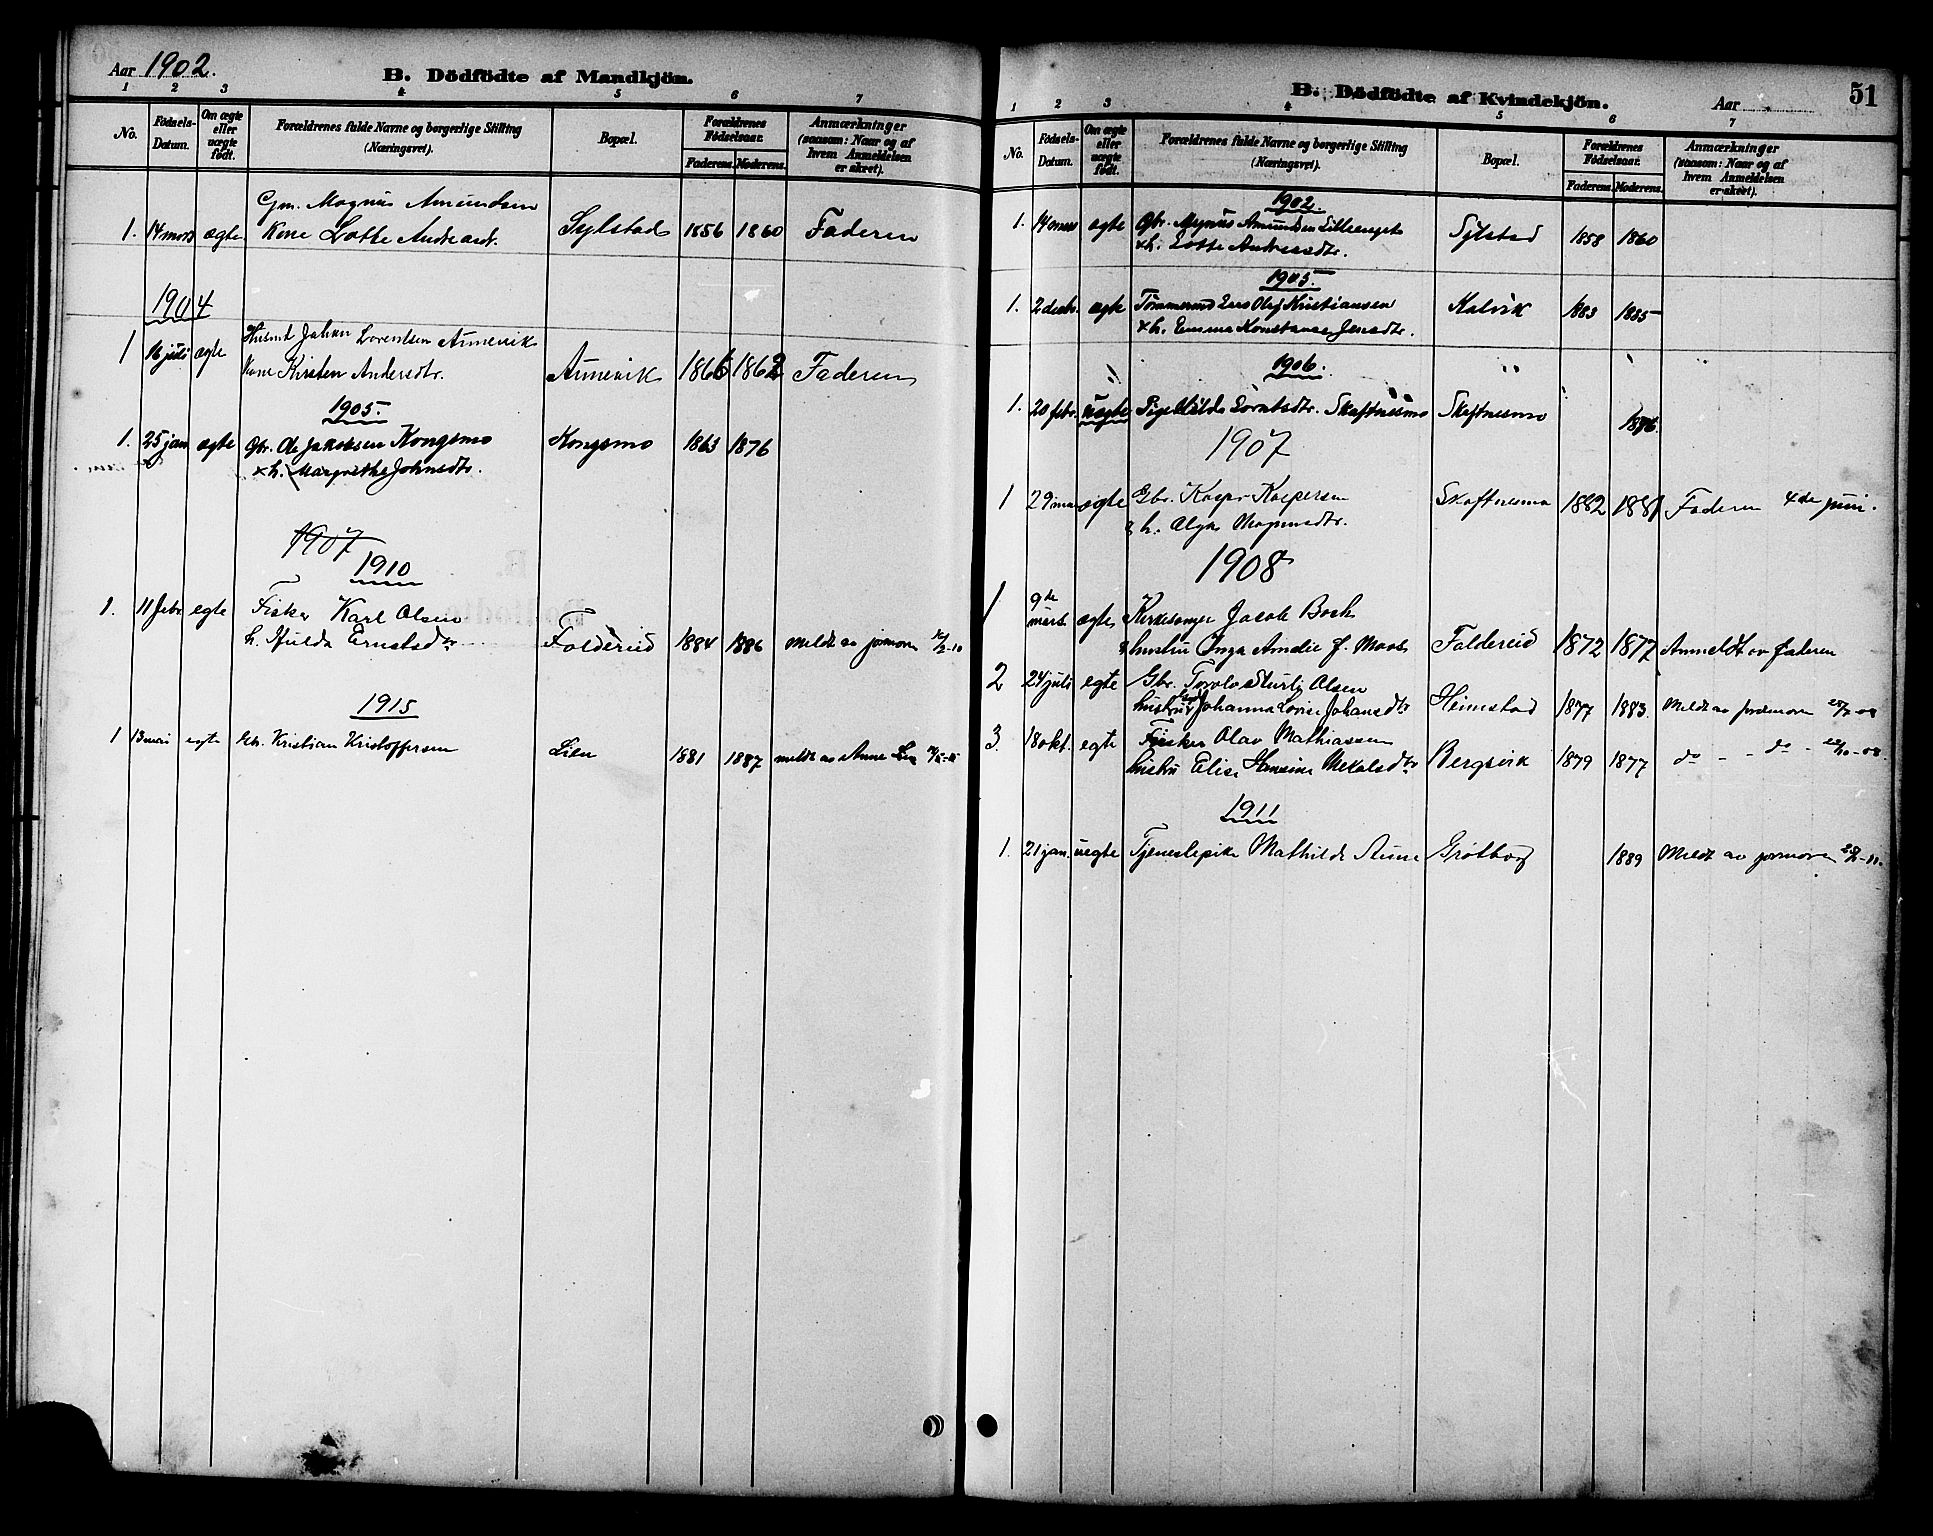 Aar 1902.
B. Dödfödte af Mandkjön.
1 2 3 4 5 6 7
No.
Födsels-Datum.
Om ægte eller uægte födt.
Forældrenes fulde Navne og borgerlige Stilling (Næringsvei).
Bopæl.
Forældrenes Födselsaar.
Faderens. Moderens.
Anmærkninger (saasom: Naar og af hvem Anmeldelsen er skeet).
Gm. Magnus Amundsen
1. 14 mars ægte Kone Lotte Andreasd. Sylstad 1856 1860 Faderen
1904
Husmd Johan Lorentsen Annevik
1 16 juli ægte Kone Kirsten Andersdtr. Annevik 1866 1862 Faderen
1905.
1. 25 jan ægte Gbr. Ole Jakobsen Kongsmo Kongsmo 1863 1876
& h. Margrethe Johnsdtr.
1907
1910
1. 11 febr. egte Fisker Karl Olsen
h. Hulda Ernstsdtr Foldereid 1884 1886 Meldt av jormoren 12/2-10
1915
1 13 mai egte Gbr. Kristian Kristoffersen Lien 1881 1887 meldt av Anne Lien
B. Dödfödte af Kvindekjön.
Aar
51
1 2 3 4 5 6 7
No.
Födsels-Datum.
Om ægte eller uægte födt.
Forældrenes fulde Navne og borgerlige Stilling (Næringsvei).
Bopæl.
Forældrenes Födselsaar.
Faderens. Moderens.
Anmærkninger (saasom: Naar og af hvem Anmeldelsen er skeet).
1902.
1. 14 mars ægte Gbr. Magnus Amundsen Lilleenget Sylstad 1858 1860
& h. Lotte Andreasdtr.
1905.
1. 2 decbr. ægte Tømmermd Lars Olej Kristiansen Kalvik 1883 1885
& h. Emma Konstanse Jensdtr.
1906.
1. 20 febr. uægte Pige Hilda Lorntsdtr. Skaftnesmo Skaftnesmo 1886.
1907
1 29 mai ægte Gbr. Kaspar Kaspersen Skaftnesmo 1882 1881 Faderen 4de juni.
& h. Olga Magnusdtr.
1908
1 9de mars ægte Kirkesanger Jacob Bosh
& hustru Inga Amalie f. Moos Foldereid 1872 1872 Anmeldt av faderen
2 24 juli egte Gbr. Torolv Sturla Olsen
hustru Johanna Lovise Johansdtr Heimstad 1877 1883. Meldt av jordmoren
3. 18 okt. egte Fisker Olav Mathiassen
hustru Elise Hansine Mekalsdtr Bergsvik 1879 1877 do - do - 22/10-08.
1911
1. 21 jan. uegte Tjenestepike Mathilde Aune Grötborg 1889 Meldt av jormoren